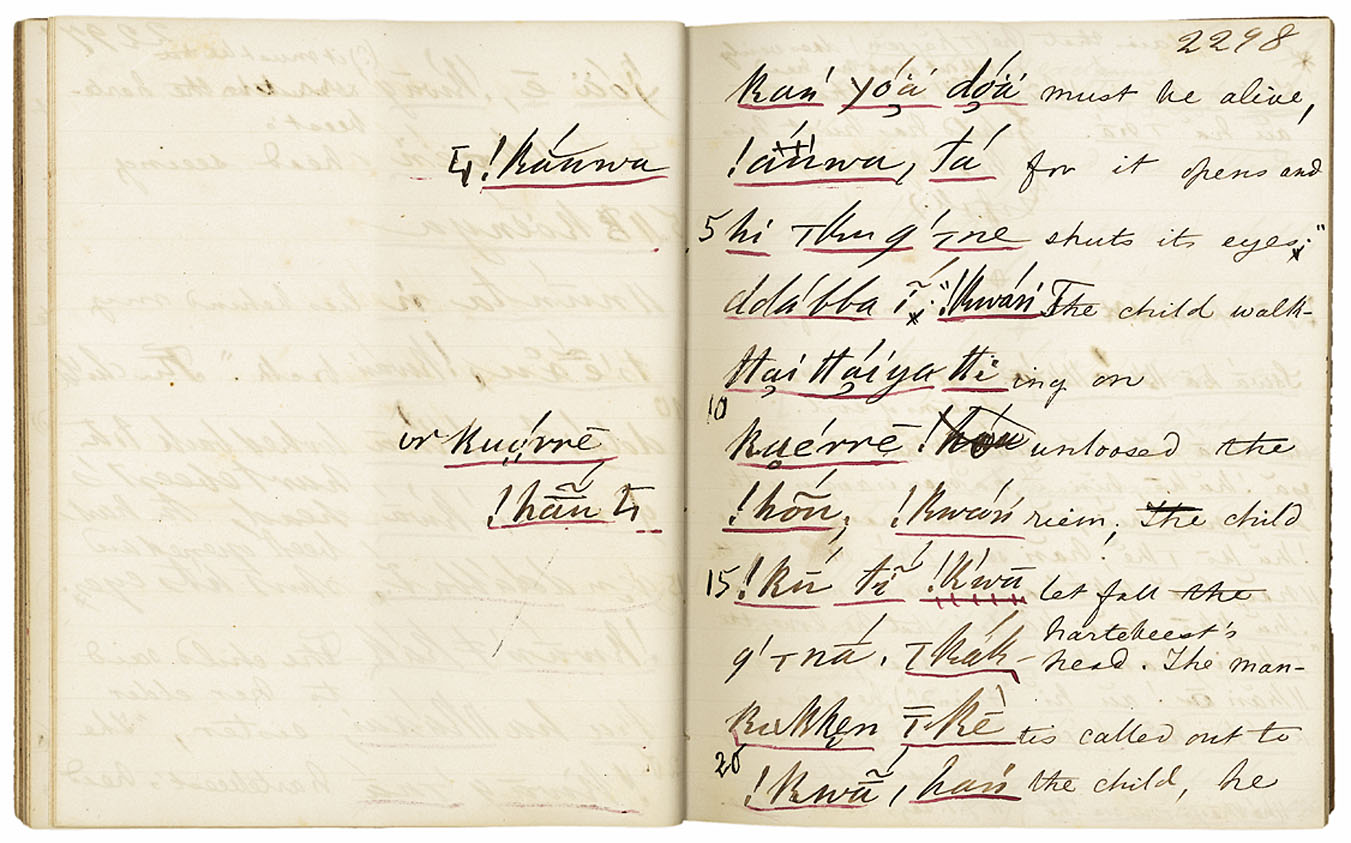 !káuwa
or kuérrĕ
!hãũ
2298
kań yóä dóä must be alive,
!aúwa, tá for it opens and
5 hi g'ne shuts its eyes;"
ddábba ĩ." !kwáń The child walk-
ttai ttáiya tti ing on
10
kuérrĕ unloosed the
!hōń, !kwáń riem, the child
15 !kú tĩ !kwā let fall the
hartebeest's
g' ná. head. The man-
kakken tis called out to
20
!kwã, hań the child, he